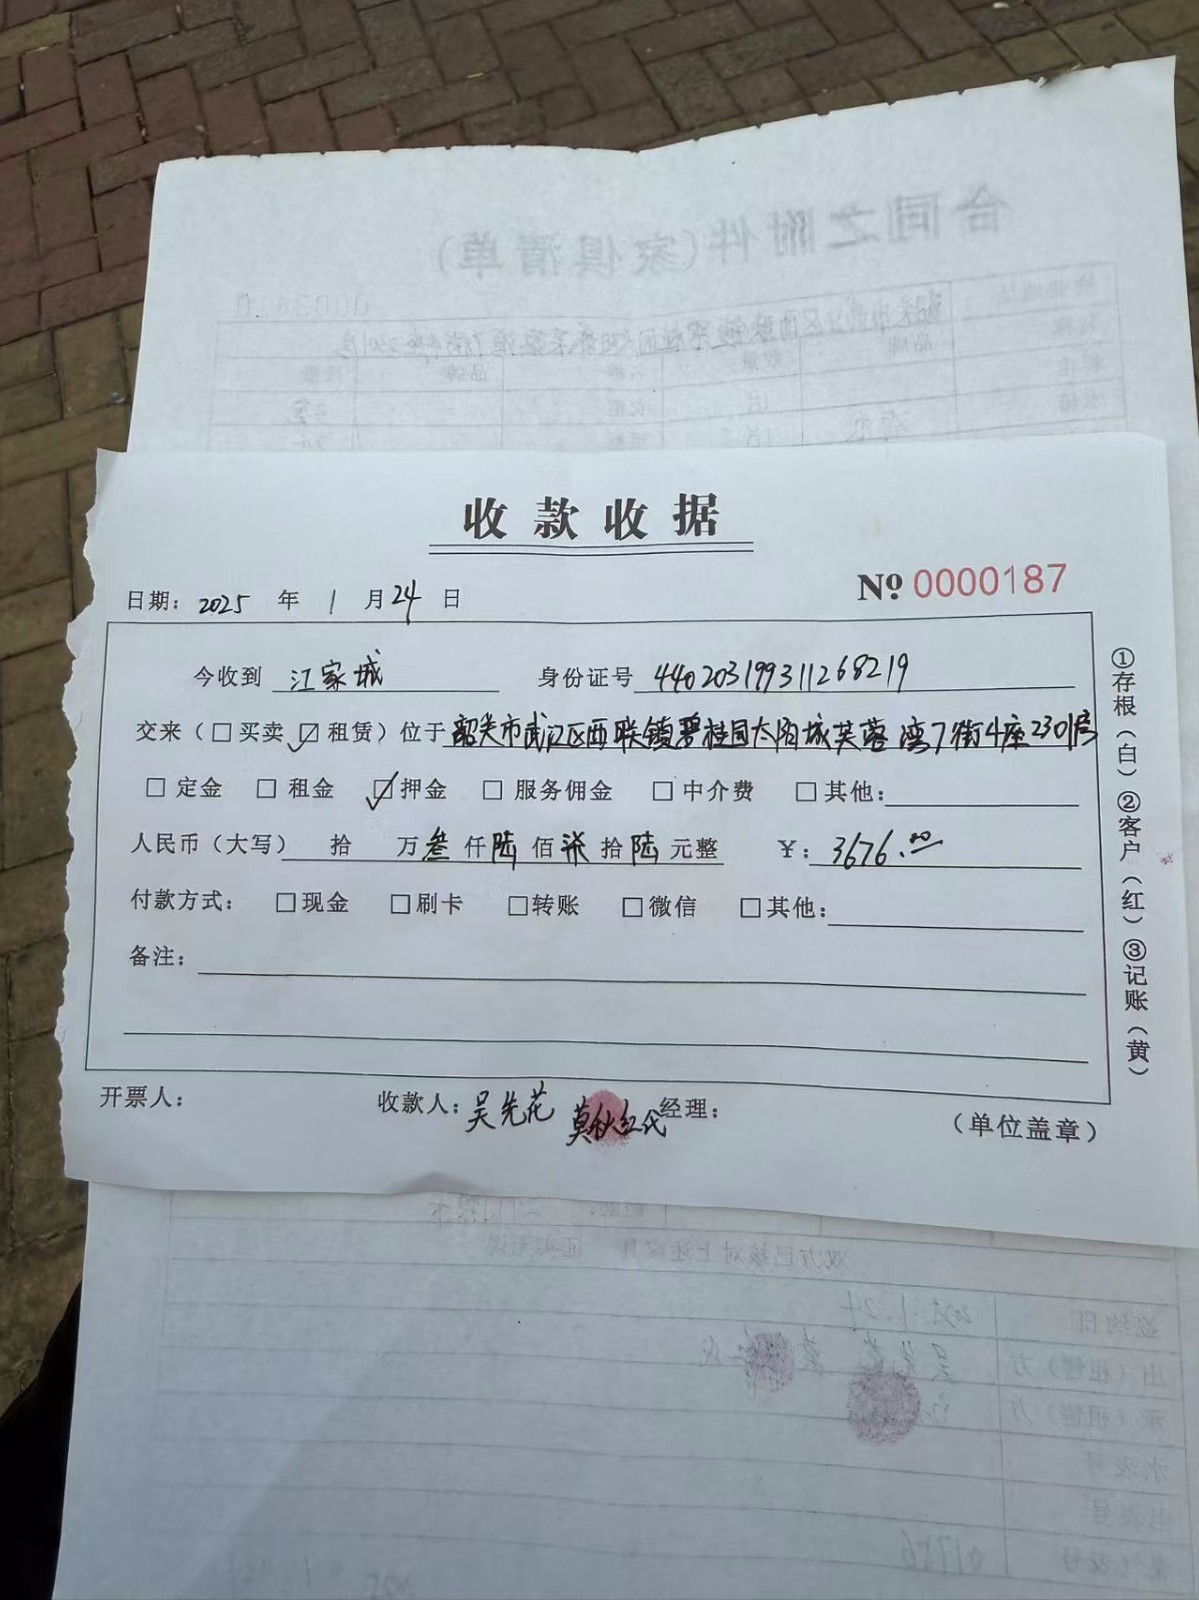 合同之附件(家俱清单)
收款收据
日期: 2025 年 1 月 24 日
№ 0000187
今收到 江家城 身份证号 440203199311268219
交来(□买卖 ☑租赁)位于 韶关市武江区西联镇碧桂园太阳城芙蓉湾7街4座2301房
□定金 □租金 ☑押金 □服务佣金 □中介费 □其他:
人民币(大写) 拾 万叁仟陆佰柒拾陆元整 ¥: 3676.00
付款方式: □现金 □刷卡 □转账 □微信 □其他:
备注:
①存根(白)②客户(红)③记账(黄)
开票人: 收款人: 吴先花 莫秋红代 经理: (单位盖章)
双方已核对上述家具
签约日 2025.1.24
出(租售)方
承(租售)方
水表号
电表号